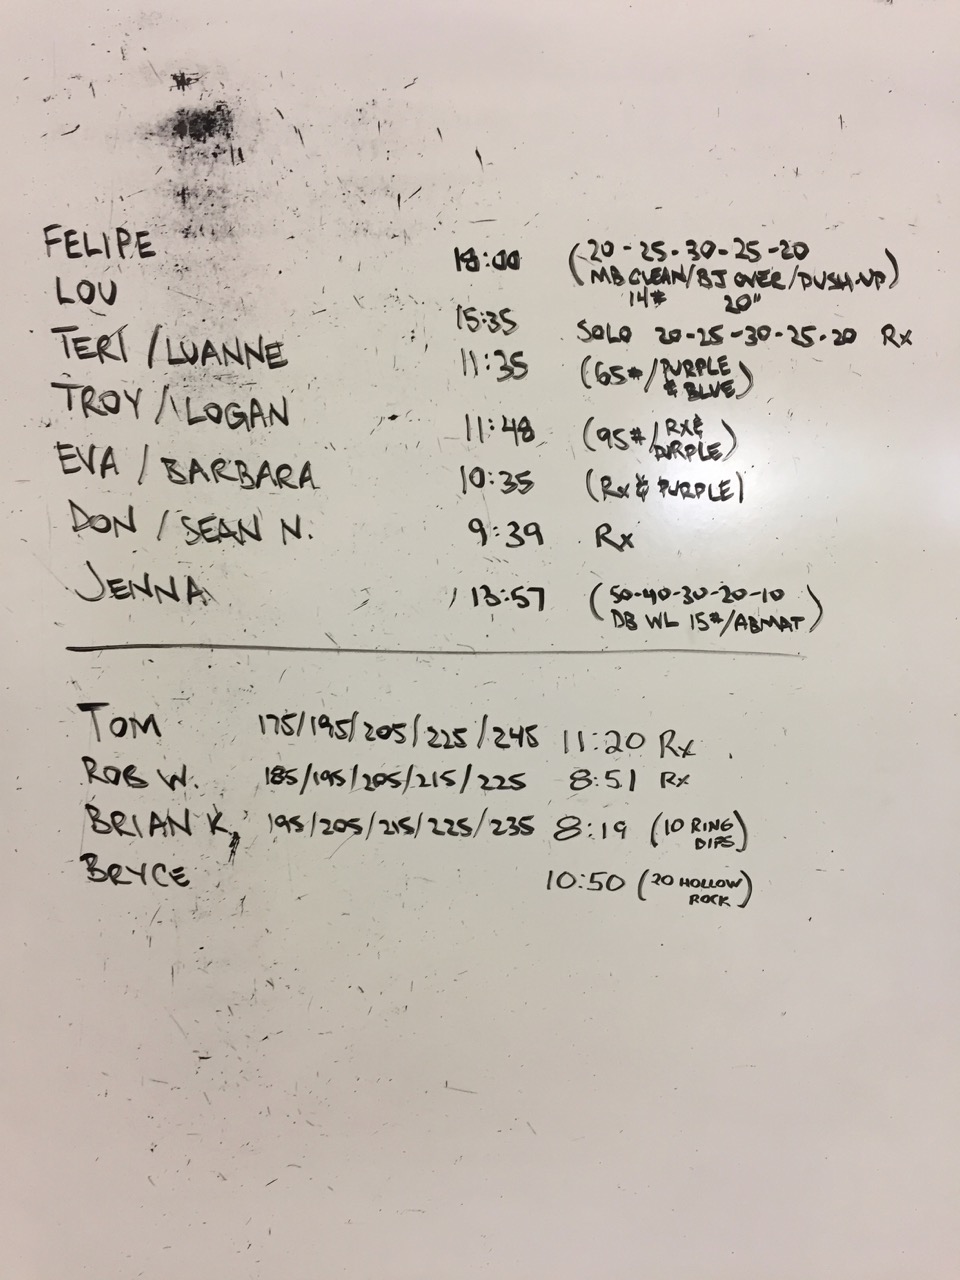 FELIPE 18:00 (20-25-30-25-20
MB CLEAN/BJ OVER/PUSH-UP)
14# 20"
LOU 15:35 SOLO 20-25-30-25-20 Rx
TERI/LUANNE 11:35 (65#/PURPLE
& BLUE)
TROY/LOGAN 11:48 (95#/RX&
PURPLE)
EVA/BARBARA 10:35 (Rx & PURPLE)
DON/SEAN N. 9:39 Rx
JENNA 13:57 (50-40-30-20-10
DB WL 15#/ABMAT)
TOM 175/195/205/225/245 11:20 Rx
ROB W. 185/195/205/215/225 8:51 Rx
BRIAN K, 195/205/215/225/235 8:19 (10 RING
DIPS)
BRYCE 10:50 (20 HOLLOW
ROCK)